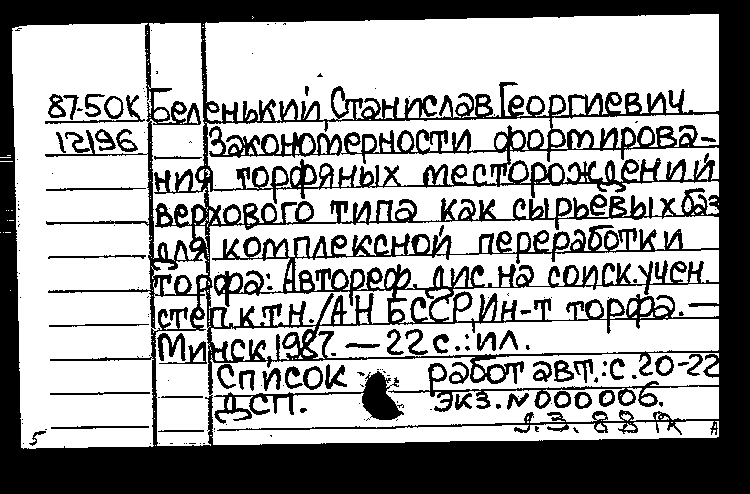 87-50К Беленький, Станислав Георгиевич.
12196 Закономерности формирова-
ния торфяных месторождений
верхового типа как сырьевых баз
для комплексной переработки
торфа: Автореф. дис. на соиск. учен.
степ. к.т.н. / АН БССР, Ин-т торфа. —
Минск, 1987. — 22 с.: ил.
Список работ авт.: с. 20-22
ДСП. экз. N 000006.
5